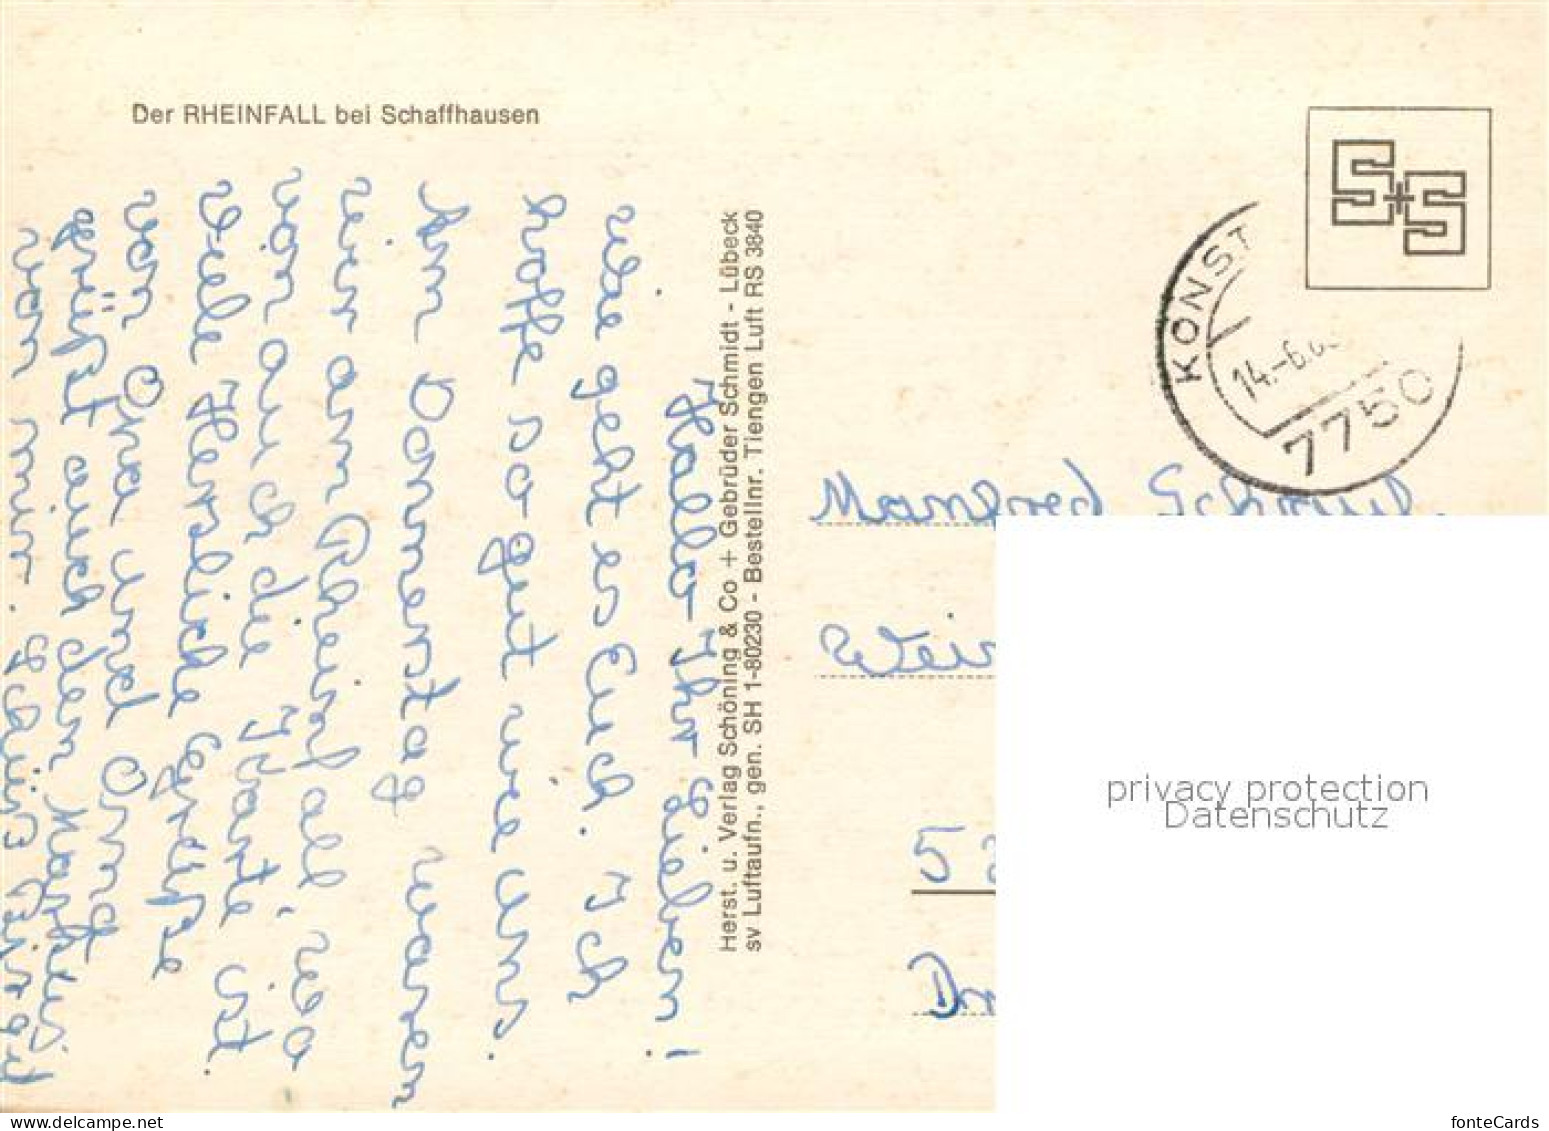 Der RHEINFALL bei Schaffhausen
S+S
KONST
14.-6.
7750
Hallo Ihr Lieben!
wie geht es Euch. Ich
hoffe so gut wie uns.
Am Donnerstag waren
wir am Rheinfall, wo
von auch die Karte ist.
Viele Herzliche Grüße
von Oma und Oma
grüßt auch den Markus
von mir.
Herst. u. Verlag Schöning & Co + Gebrüder Schmidt - Lübeck
sv Luftaufn., gen. SH 1-80230 - Bestellnr. Tiengen Luft RS 3840
Manfred
5
privacy protection
Datenschutz
fonteCards